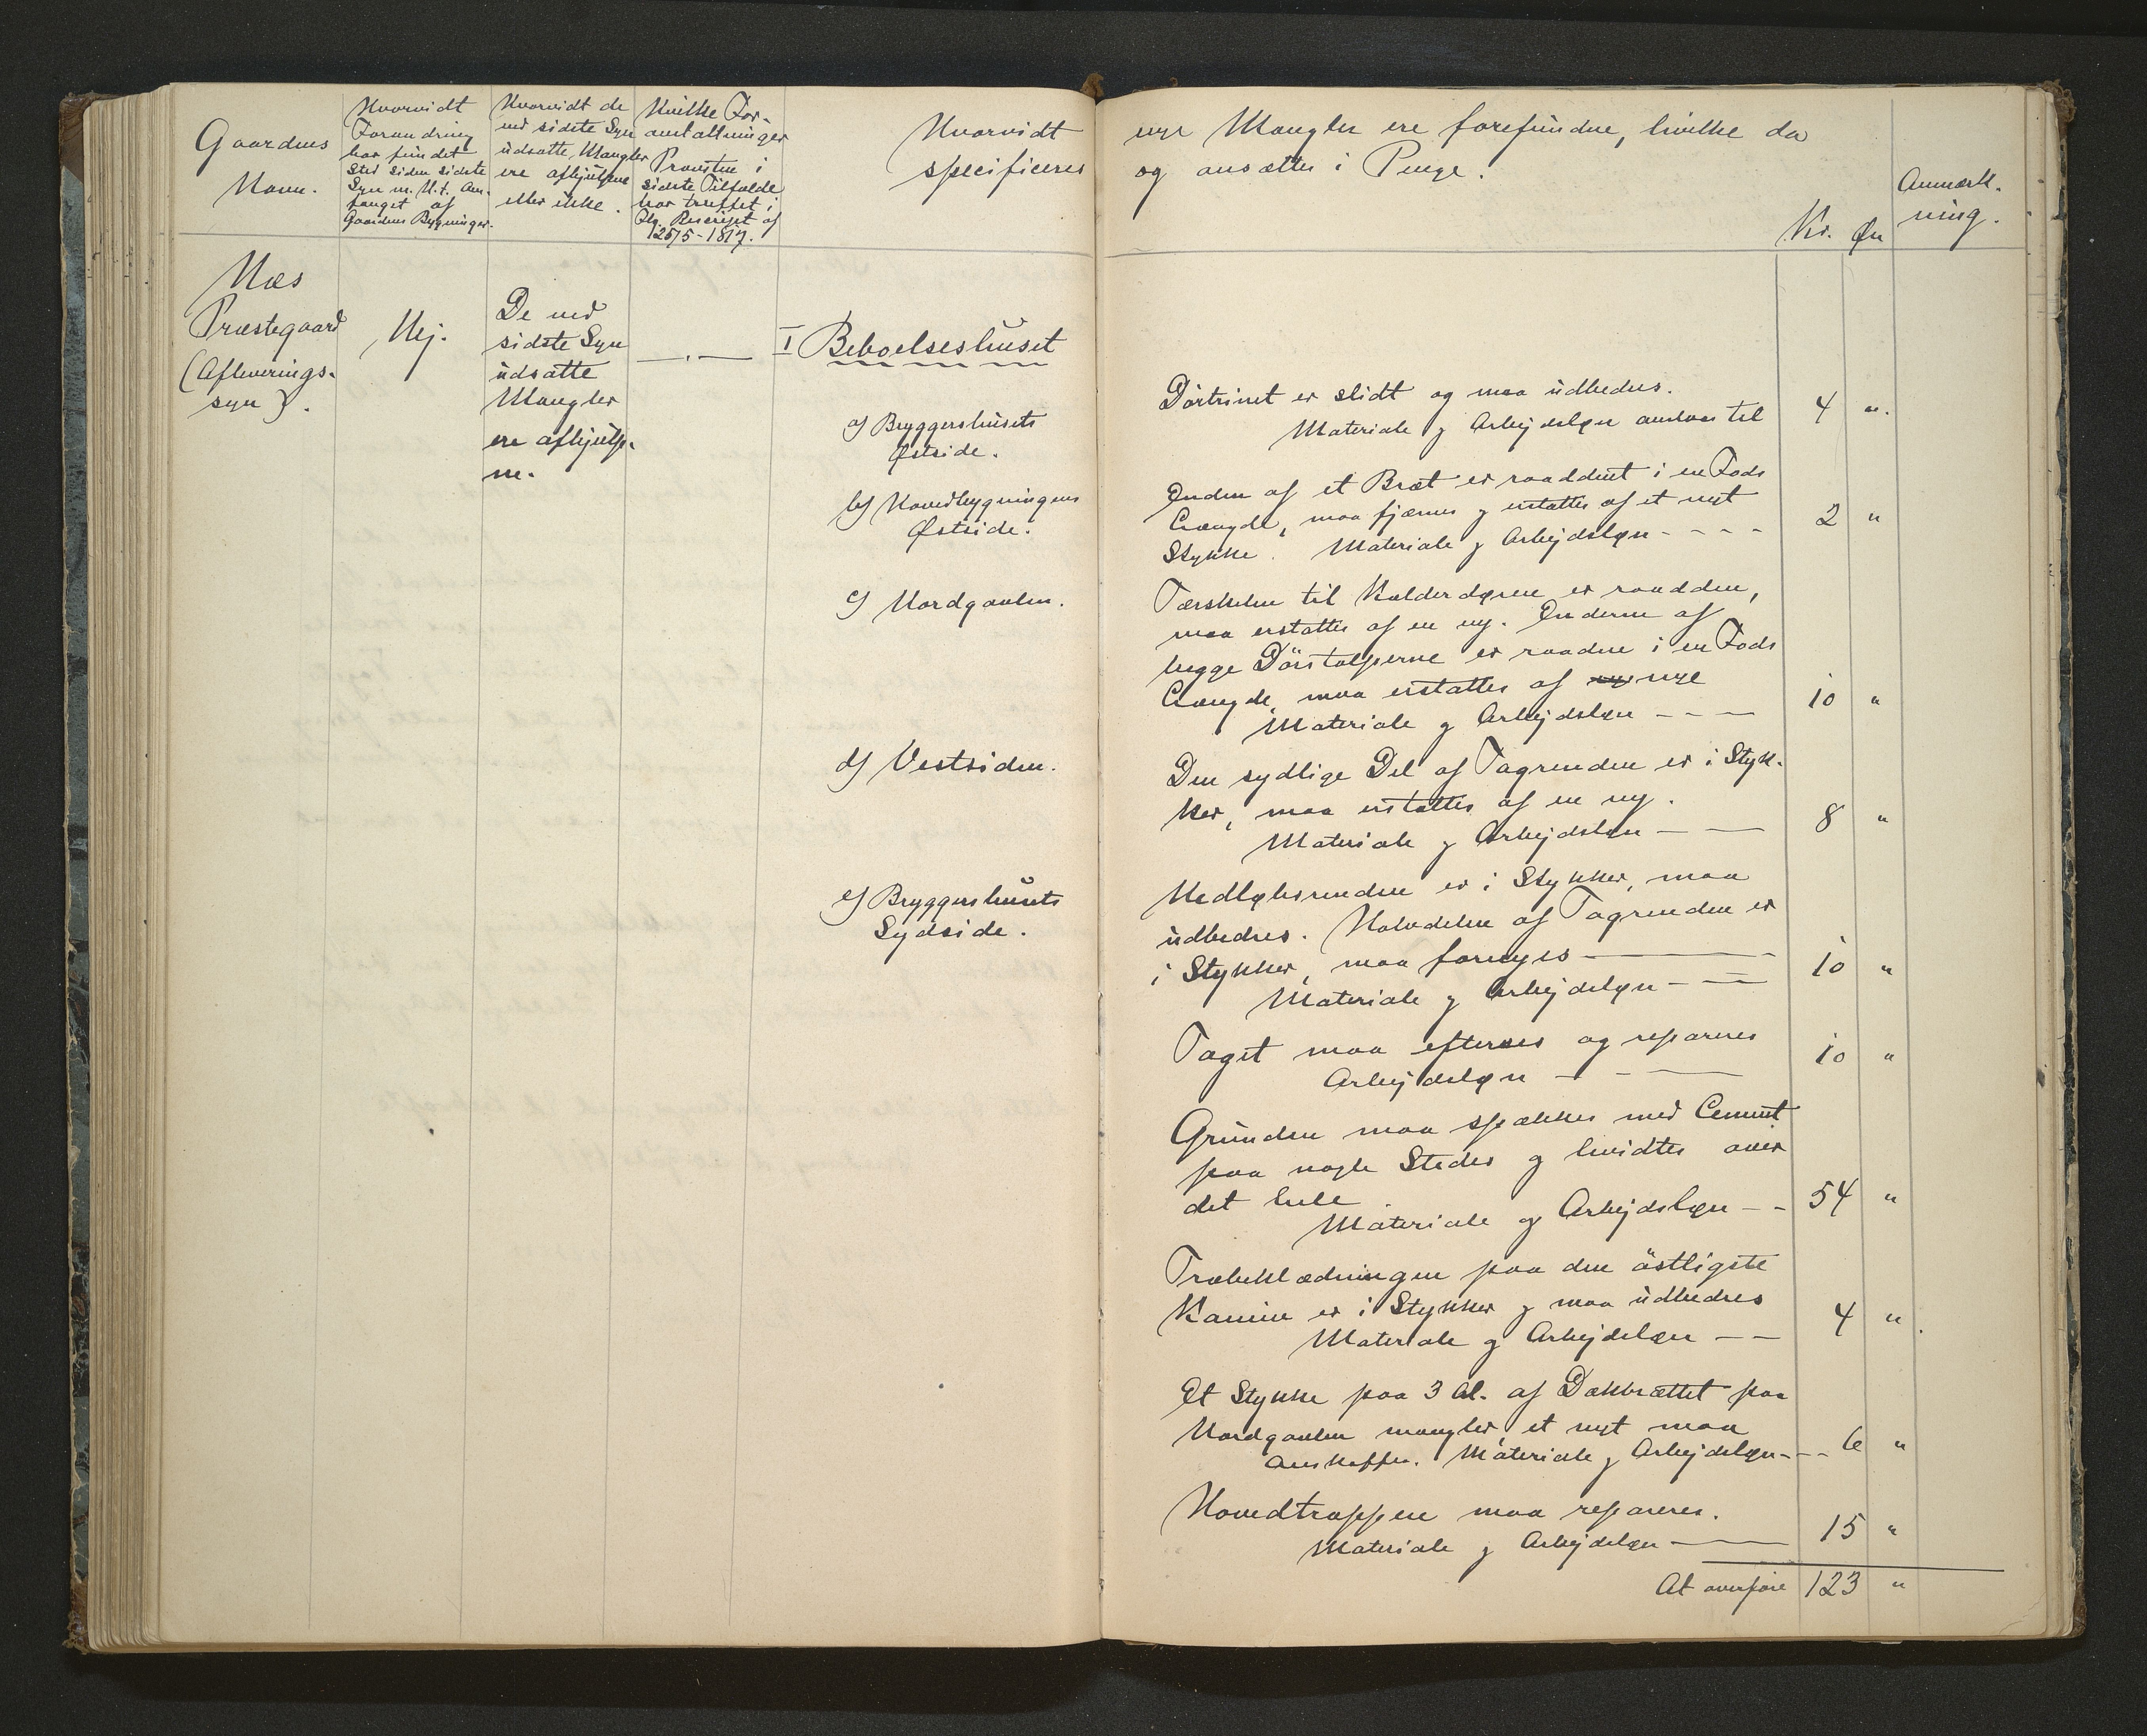 Gaardens
Navn.
Hvorvidt
Forandring
har fundet
Sted siden sidste
Syn m. H. t. Om-
fanget af
Gaardens Bygninger.
Hvorvidt de
ved sidste Syn
udsatte Mangler
ere afhjulpne
eller ikke.
Hvilke For-
anstaltninger
Provsten i
sidste Tilfælde
har truffet i
Flg. Rescript af
12675-1817.
Hvorvidt
specificeres
nye Mangler ere forefundne, hvilke da
og ansættes i Penge.
Kr. Øre
Anmærk-
ning.
Næs
Præstegaard
(Afleverings-
syn).
Nej.
De ved
sidste Syn
udsatte
Mangler
ere afhjulp-
ne.
I Beboelseshuset
a) Bryggershusets
Østside.
Dörtrinet er slidt og maa udbedres.
Materiale og Arbejdsløn anslaas til 4 "
b) Hovedbygningens
Østside.
Enden af et Bræt er raaddent i en Fods
Længde, maa fjærnes og erstattes af et nyt
Stykke. Materiale og Arbejdsløn - - - - 2 "
c) Nordgavlen.
Tærskelen til Kælderdøren er raadden,
maa erstattes af en ny. Enderne af
begge Dörstolperne er raadne i en Fods
Længde, maa erstattes af ny nye
Materiale og Arbejdsløn - - - 10 "
d) Vestsiden.
Den sydlige Del af Tagrenden er i Styk-
ker, maa erstattes af en ny.
Materiale og Arbejdsløn - - 8 "
e) Bryggershusets
Sydside.
Nedløbsrenden er i Stykker, maa
udbedres. Halvdelen af Tagrenden er
i Stykker, maa fornyes -
Materiale og Arbejdsløn - - 10 "
Taget maa efterses og repareres
Arbejdsløn - - - 10 "
Grunden maa spækkes med Cement
paa nogle Steder og hvidtes over
det hele
Materiale og Arbejdsløn - - 54 "
Træbeklædningen paa den östligste
Kamin er i Stykker og maa udbedres
Materiale og Arbejdsløn - - 4 "
Et Stykke paa 3 Al. af Dækbrættet paa
Nordgavlen mangler, et nyt maa
anskaffes. Materiale og Arbejdsløn - - - 6 "
Hovedtrappen maa repareres.
Materiale og Arbejdsløn - 15 "
At overføre 123 "